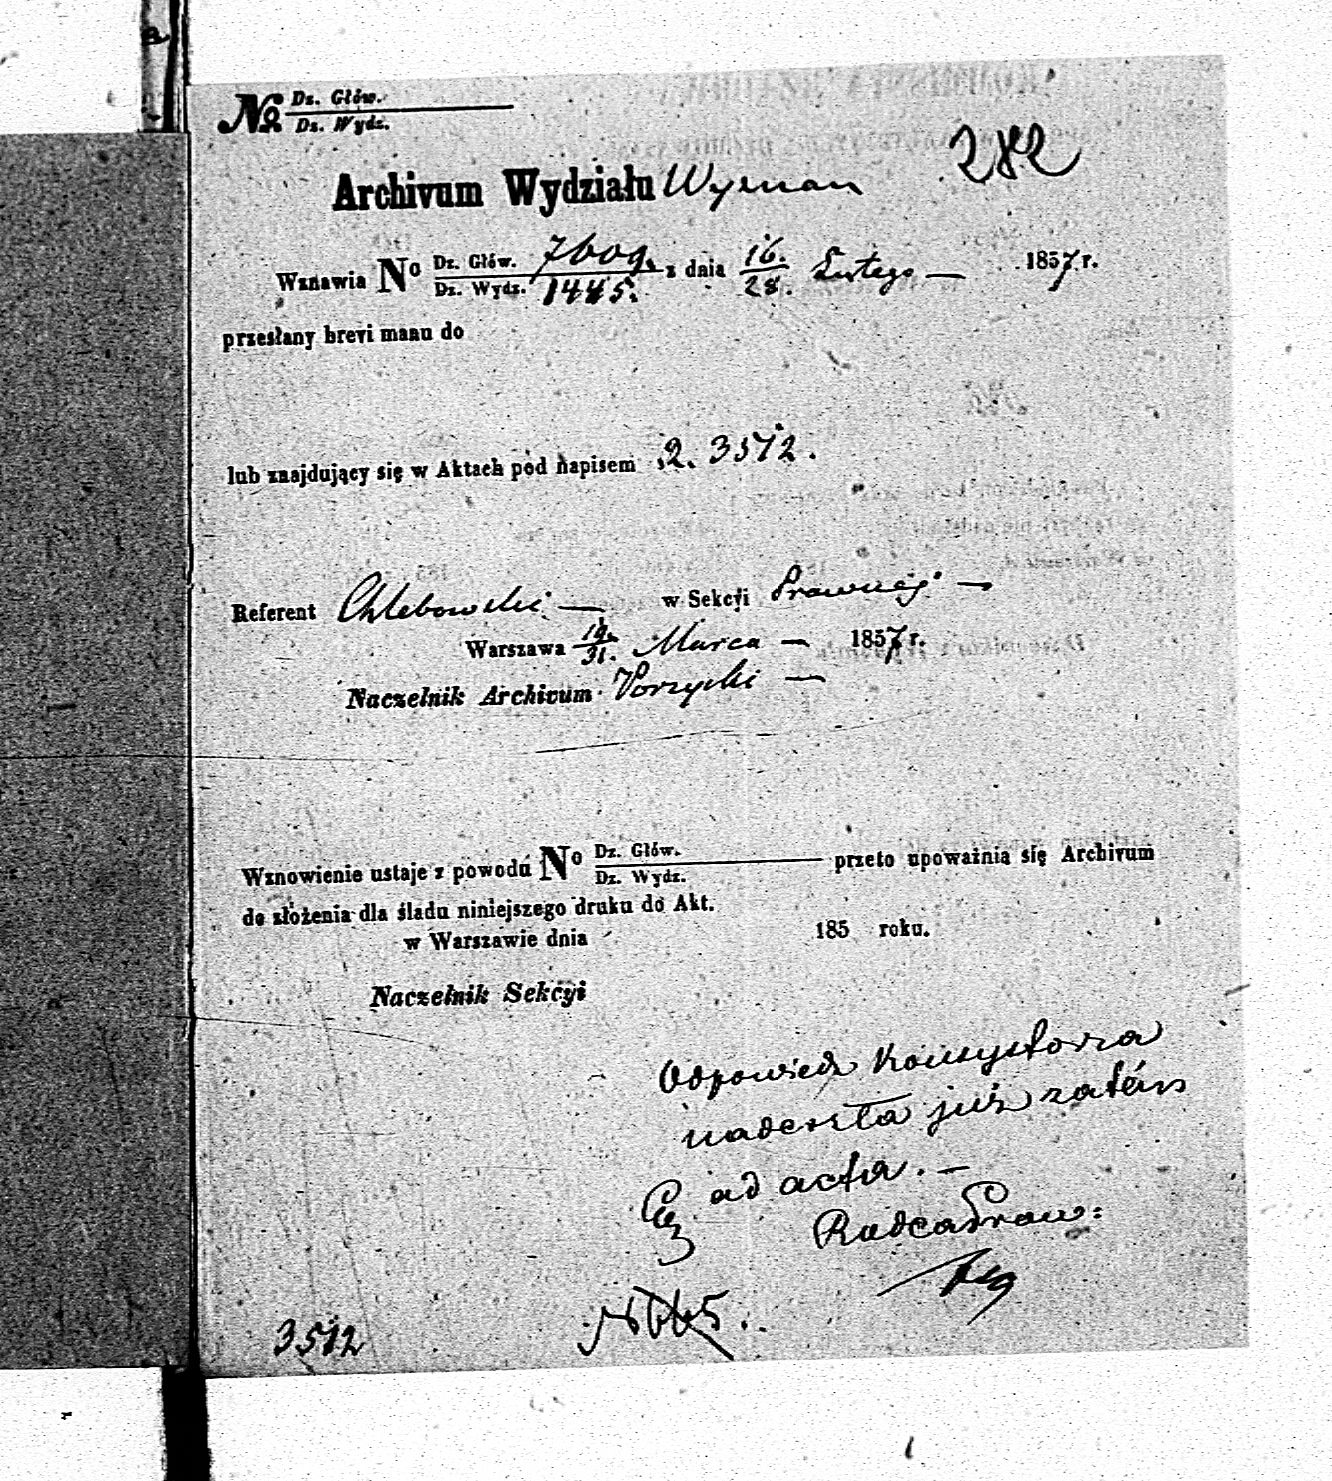 № Dz. Głów.
Dz. Wydz.
282
Archivum Wydziału Wyznan
Wznawia No Dz. Głów. 7609. z dnia 16. Lutego — 1857 r.
Dz. Wydz. 1445. 28.
przesłany brevi manu do
lub znajdujący się w Aktach pod napisem 2. 3512.
Referent Chlebowski — w Sekcji Prawnej —
Warszawa 19/31. Marca — 1857 r.
Naczelnik Archivum
Wznowienie ustaje z powodu No Dz. Głów. przeto upoważnia się Archivum
Dz. Wydz.
do złożenia dla śladu niniejszego druku do Akt.
w Warszawie dnia 185 roku.
Naczelnik Sekcyi
Odpowiedz Konsystorza
nadeszła już zatém
ad acta. —
Radca Praw:
3512